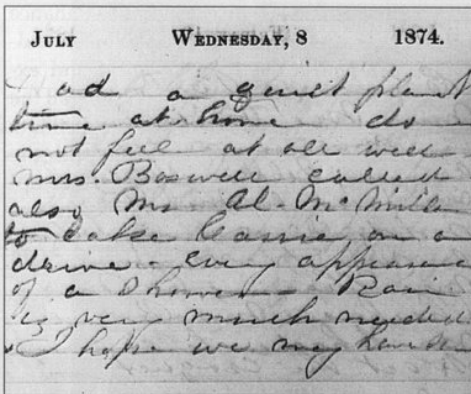 JULY WEDNESDAY, 8 1874.
Had a quiet pleasant
time at home do
not feel at all well
Mrs. Boswell called
also Mr Al. McMilla
to take Cassie on a
drive - every appearance
of a shower - Rain
is very much needed
I hope we may have